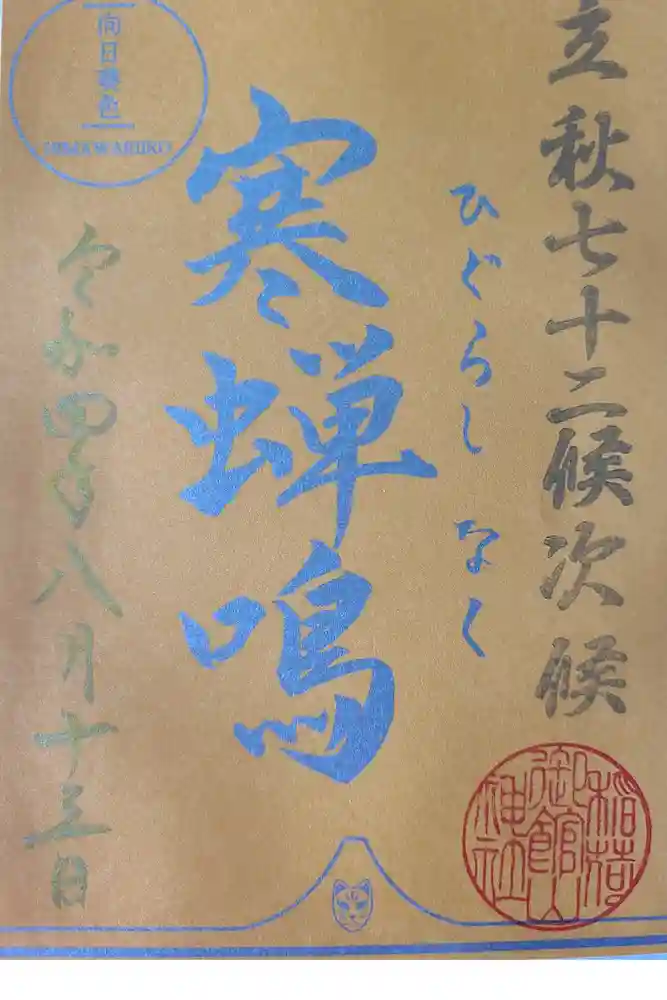 立秋七十二候次候
ひぐらし なく
寒蝉鳴
向日葵色
HIMAWARIIRO
令和四年八月十三日
稲荷
御館山
神社